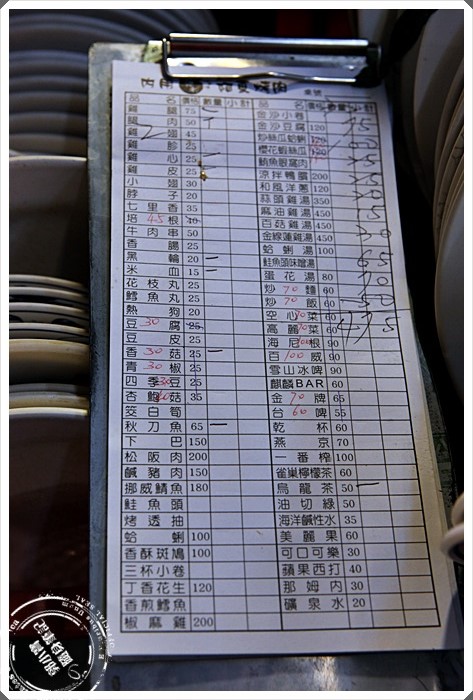 內用
品名 價格 數量 小計
雞腿 75
腿肉 50
雞翅 45 2
雞胗 25
雞心 25
雞皮 25
小翅 30
脖子 20
七里香 35
培根 40 45
牛肉串 50
香腸 25
黑輪 20
米血 15
花枝丸 25
鱈魚丸 25
熱狗 20
豆腐 25 30
豆皮 25
香菇 25 30
青椒 25 30
四季豆 25 30
杏鮑菇 35
筊白筍
秋刀魚 65
下巴 150
松阪肉 200
鹹豬肉 150
挪威鯖魚 180
鮭魚頭
烤透抽
蛤蜊 100
香酥斑鳩 100
三杯小卷
丁香花生 120
香煎鱈魚
椒麻雞 200
品名 價格 數量 小計
金沙小卷
金沙豆腐 120
炒絲瓜蛤蜊
櫻花蝦絲瓜
鮪魚眼窩肉
涼拌鴨腸 200
和風洋蔥 120
蒜頭雞湯 350
麻油雞湯 450
百菇雞湯 450
金線蓮雞湯 450
蛤蜊湯 100
鮭魚頭味噌湯
蛋花湯 80
炒麵 60 70
炒飯 60 70
空心菜 60
高麗菜 60
海尼根 90 100
百威 90 100
雪山冰啤 90
麒麟BAR 60
金牌 65 70
台啤 55 60
乾杯 60
燕京 70
一番榨 100
雀巢檸檬茶 60
烏龍茶 50
油切綠 50
海洋鹹性水 35
美麗果 60
可口可樂 30
蘋果西打 40
那姆內 30
礦泉水 20